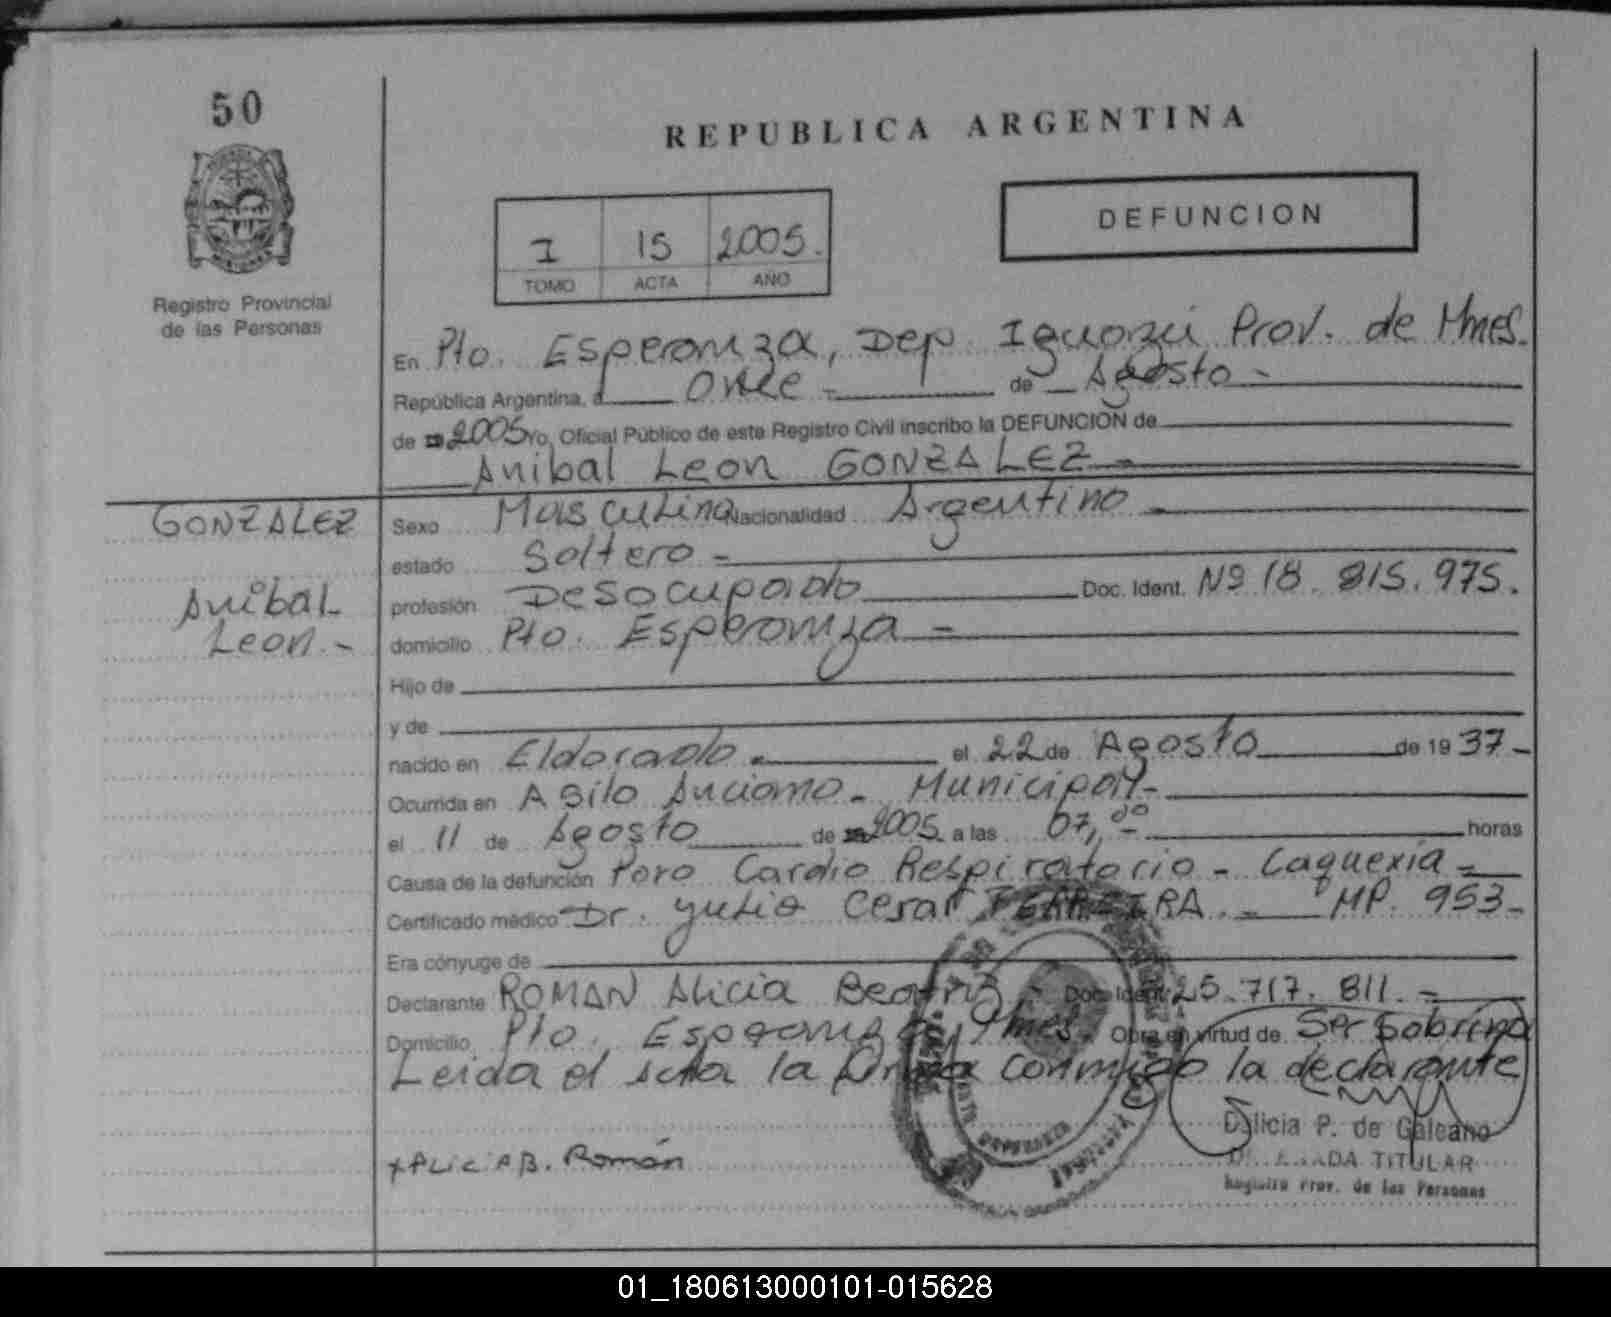 50
REPUBLICA ARGENTINA
DEFUNCION
I 15 2005.
TOMO ACTA AÑO
Registro Provincial
de las Personas
En Pto. Esperanza, Dep. Iguazú Prov. de Mnes.
República Argentina, a Once - de Agosto -
de 2005 Yo, Oficial Público de este Registro Civil inscribo la DEFUNCION de
Anibal Leon GONZALEZ -
GONZALEZ
Anibal
Leon. -
Sexo Masculino Nacionalidad Argentino -
estado Soltero -
profesión Desocupado Doc. Ident. Nº 18.815.975.
domicilio Pto. Esperanza -
Hijo de
y de
nacido en Eldorado - el 22 de Agosto de 1937 -
Ocurrida en Asilo Anciano - Municipal -
el 11 de Agosto de 2005 a las 07,00 - horas
Causa de la defunción Paro Cardio Respiratorio - Caquexia -
Certificado médico Dr. Julio Cesar FERREIRA. - MP. 953 -
Era cónyuge de
Declarante ROMAN Alicia Beatriz - Doc. Ident. 25.717.811. -
Domicilio Pto. Esperanza, Mnes. Obra en virtud de Ser Sobrina
Leida el acta la firma conmigo la declarante
Delicia P. de Galeano
DELEGADA TITULAR
Registro Prov. de las Personas
x ALiciA B. Román
01_180613000101-015628